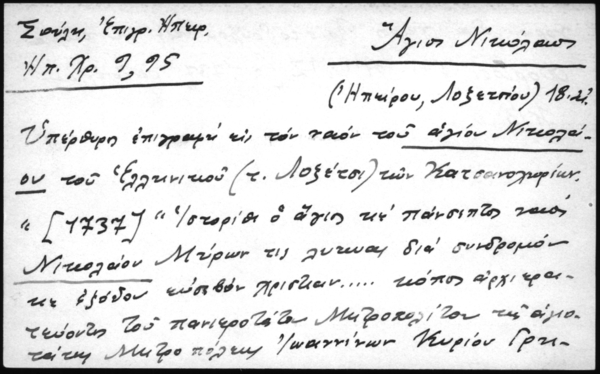 Σούλη, Ἐπιγρ. Ηπειρ.
Ηπ. Χρ. 9, 95
Ἅγιος Νικόλαος
(Ἠπείρου, Λοζετσίου) 18.
Ὑπέρθυρος ἐπιγραφή εἰς τόν ναόν τοῦ ἁγίου Νικολά-
ου τοῦ Ἑλληνικοῦ (τ. Λοζέτσι) τῶν Κατσανοχωρίων.
"[1737] "Ἱστορίθι ὁ ἅγιος κέ πάνσεπτος ναός
Νικολαίου Μύρων τις λυκιας διά συνδρομόν
κε ἐξόδου χριστιαν..... κόπος ἀρχιερα-
τεύοντος τοῦ πανιεροτάτου Μητροπολίτου τῆς ἁγιο-
τάτης Μητροπόλεως Ἰωαννίνων Κυρίου Γρη-